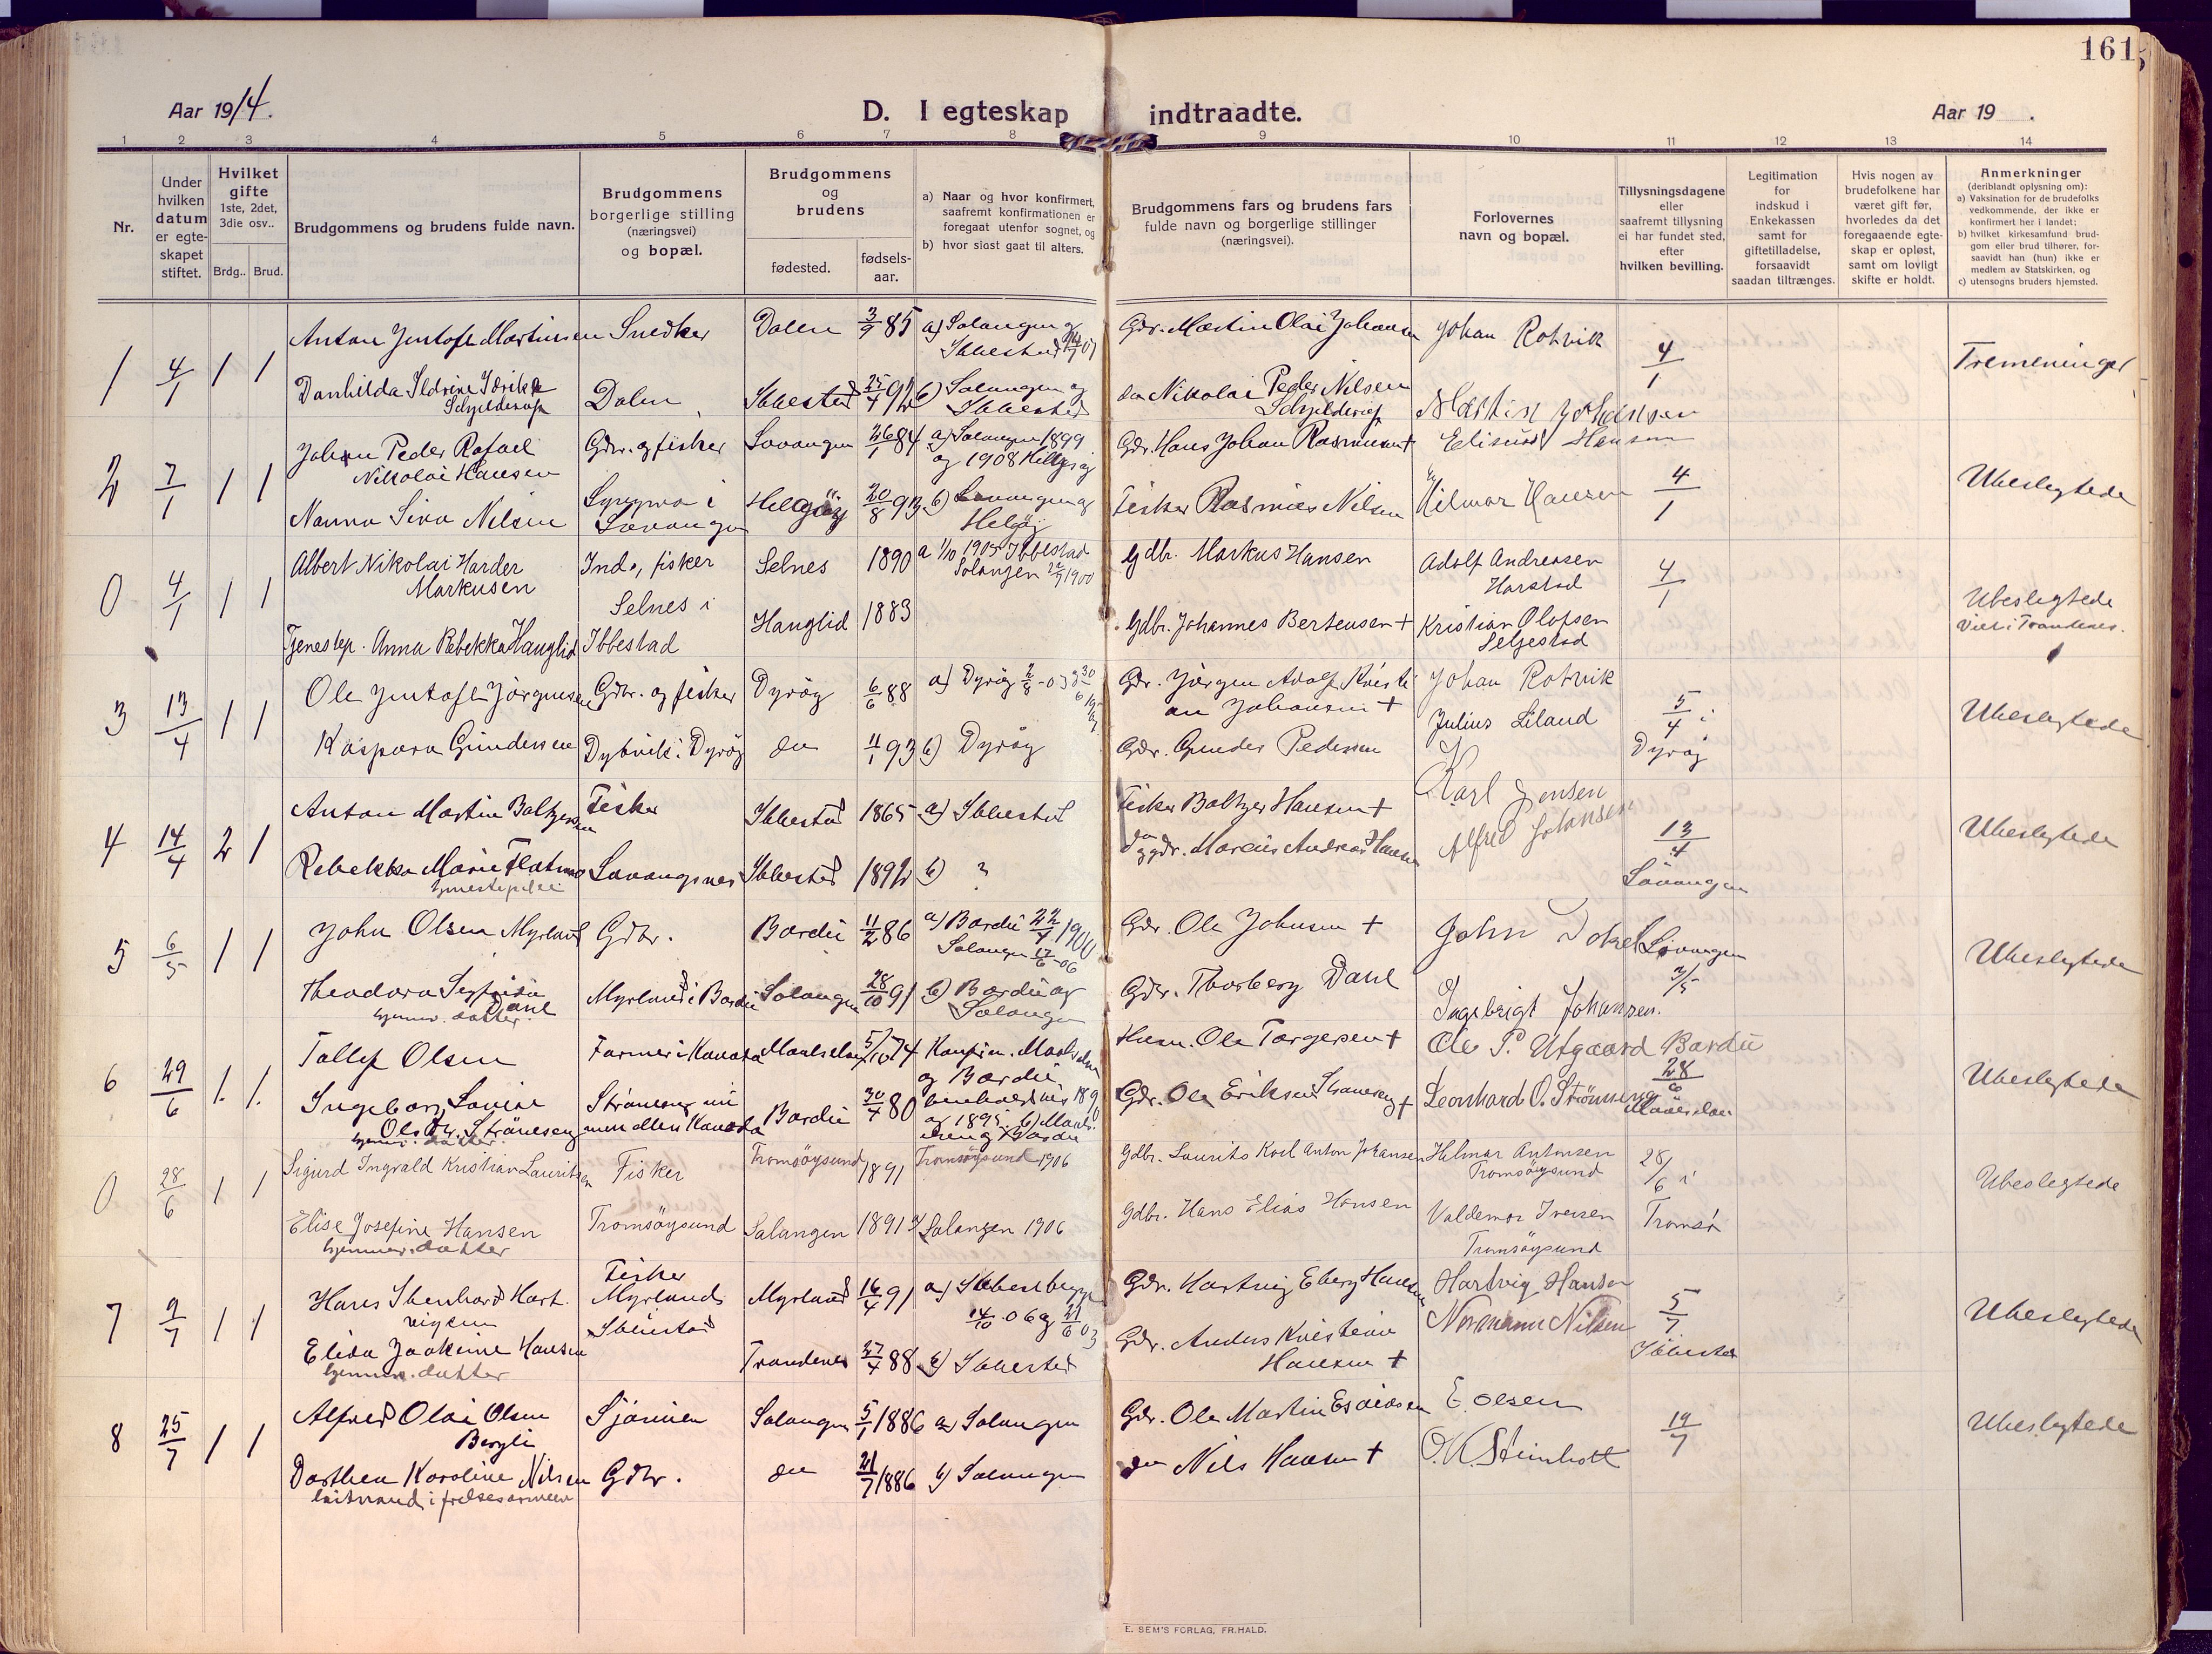 161
Aar 1914.
D. I egteskap indtraadte.
Aar 19 .
1 2 3 4 5 6 7 8 9 10 11 12 13 14
Nr.
Under hvilken datum er egteskapet stiftet.
Hvilket gifte 1ste, 2det, 3die osv..
Brdg.. Brud.
Brudgommens og brudens fulde navn.
Brudgommens borgerlige stilling (næringsvei) og bopæl.
Brudgommens og brudens
fødested.
fødselsaar.
a) Naar og hvor konfirmert, saafremt konfirmationen er foregaat utenfor sognet, og
b) hvor sidst gaat til alters.
Brudgommens fars og brudens fars fulde navn og borgerlige stillinger (næringsvei).
Forlovernes navn og bopæl.
Tillysningsdagene eller saafremt tillysning ei har fundet sted, efter hvilken bevilling.
Legitimation for indskud i Enkekassen samt for giftetilladelse, forsaavidt saadan tiltrænges.
Hvis nogen av brudefolkene har været gift før, hvorledes da det foregaaende egteskap er opløst, samt om lovligt skifte er holdt.
Anmerkninger
(deriblandt oplysning om):
a) Vaksination for de brudefolks vedkommende, der ikke er konfirmert her i landet;
b) hvilket kirkesamfund brudgom eller brud tilhører, forsaavidt han (hun) ikke er medlem av Statskirken, og
c) utensogns bruders hjemsted.
1 4/1 1 1 Anton Justofl Martinsen Snedker Dalen 3/9 85 a) Salangen og Gdr. Martin Olai Johansen Johan Rotvik 4/1 Tremeninger
Ibbestad
Danhilda Ildrine Idrikke Dalen Ibbestad 25/4 92 b) Salangen og do Nikolai Peder Nilsen Martin Johansen
Ibbestad
2 7/1 1 1 Johan Peder Rafael Gdr. og fisker Lavangen 26/1 84 a) Salangen 1899 Gdr. Hans Johan Rasmussen + Edinius Hansen 4/1 Ubeslegtede
Nikolai Hansen og 1908
Nanna Sina Nilsen i Lavangen Helgöy 20/8 93 b) Lavangen og Fisker Rasmus Nilsen Hilmar Hansen
Helgöy
0 4/1 1 1 Albert Nikolai Harder Ind., fisker Selnes 1890 a 1/10 1905 Ibbestad Gdbr. Markus Hansen Adolf Andreasen 4/1 Ubeslegtede
Markusen Selnes i Salangen 1900 Harstad Viet i Trondenes.
Tjenestep. Anna Rebekka Hanglid Ibbestad Hanglid 1883 Gdbr. Johannes Bertensen + Kristian Olofsen
Seljestad
3 13/4 1 1 Ole Justofl Jörgensen Gdbr. og fisker Dyröy 6/6 88 a) Dyröy 2/8-03 Gdr. Jörgen Adolf Kristi Johan Rotvik 5/4 i Ubeslegtede
an Johansen + Julius Liland Dyröy
Kaspara Gundersen Dybvik i Dyröy do 11/1 93 b) Dyröy Gdr. Gunder Pedersen
4 14/4 2 1 Anton Martin Baltzersen Fisker Ibbestad 1865 a) Ibbestad Fisker Baltzer Hansen + Karl Jensen 13/4 Ubeslegtede
Rebekka Marie Flatmo Lavangsnes Ibbestad 1892 b) ? do og gdr. Marcus Andreas Hansen Alfred Johansen Lavangen
tjenestepike
5 6/5 1 1 John Olsen Myrland Gdbr. Bardu 11/2 86 a) Bardu 22/4 1900 Gdr. Ole Johnsen + John Lavangen Ubeslegtede
Salangen 17/6-06 3/5
Theodora Dahl Myrland i Bardu Salangen 28/10 91 b) Bardu og Gdr. Thorberg Dahl Ingebrigt Johansen.
hjemmev. datter. Salangen
6 29/6 1. 1. Tollef Olsen Farmer i Kanada Maalselven 5/10 74 Konfirm. Maalselven Husm. Ole Torgersen + Ole P. Utgaard Bardu 28/6 Ubeslegtede
og Bardu
Ingeborg Lovise Bardu 30/4 80 henholdsvis 1890 Gdr. Ole Eriksen Straneseng + Leonhard O. Strømseng Maalselven
Ols Dtr. Straneseng Kanada og 1895. b) Maalselven og Bardu
hjemmev. datter.
0 28/6 1 1 Sigurd Ingvald Kristian Lauritsen Fisker Tromsöysund 1891 Tromsöysund 1906 Gdbr. Laurits Karl Anton Johansen Hilmar Antonsen 28/6 i Ubeslegtede
Tromsöysund
Elise Josefine Hansen Tromsöysund Salangen 1891 Salangen 1906 Gdbr. Hans Elias Hansen Valdemar Iversen Tromsø
hjemmev. datter Tromsöysund
7 9/7 1 1 Hans Ibenhard Hart- Fisker Myrland 16/4 91 a) Gdr. Hartvig Eberg Hansen Hartvig Hansen 5/7 Ubeslegtede
vigsen Myrlands 14/10-06 og 21/6 03
Ibbestad Normann Nilsen Ibbestad
Elida Joakime Hansen Trondenes 27/4 88 b) Ibbestad Gdr. Anders Kristian
hjemmev. datter Hansen +
8 25/7 1 1 Alfred Olai Olsen Sjömen Salangen 5/1 1886 a) Salangen Gdr. Ole Martin Esaiasen E. Olsen 19/7 Ubeslegtede
Bergli
Dorthea Karoline Nilsen Gdbr. do 21/7 1886 b) Salangen do Nils Hansen + O.K. Steinholt
løitnand i frelsesarmeen
E. SEM'S FORLAG, FR.HALD.